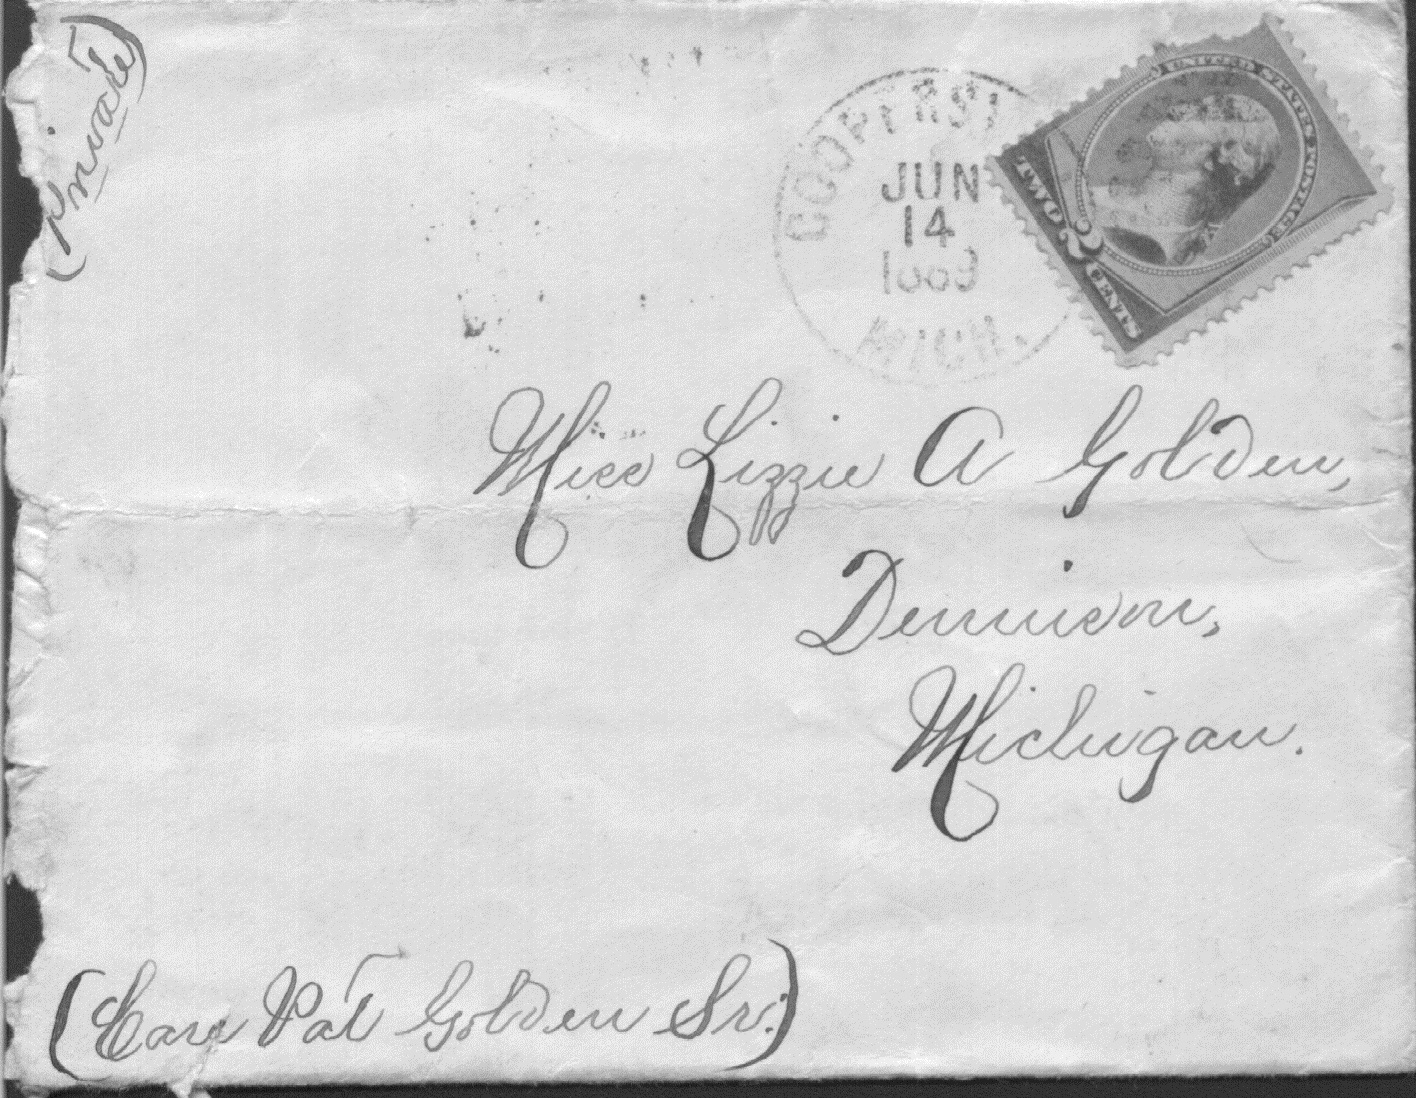 (Private)
COOPERST
JUN
14
1889
MICH.
UNITED STATES POSTAGE
TWO 2 CENTS
Miss Lizzie A Golden,
Dennison,
Michigan.
(Care Pat Golden Sr.)